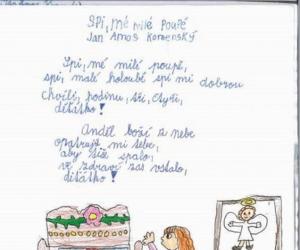 Spi, mé milé poupě
Jan Amos Komenský
Spi, mé milé poupě,
spi, malé holoubě spi mi dobrou
chvíli, hodinu, tři, čtyři,
děťátko!
Anděl boží z nebe
opatruj mi tebe,
aby tiše spalo,
ve zdraví zas vstalo,
děťátko!